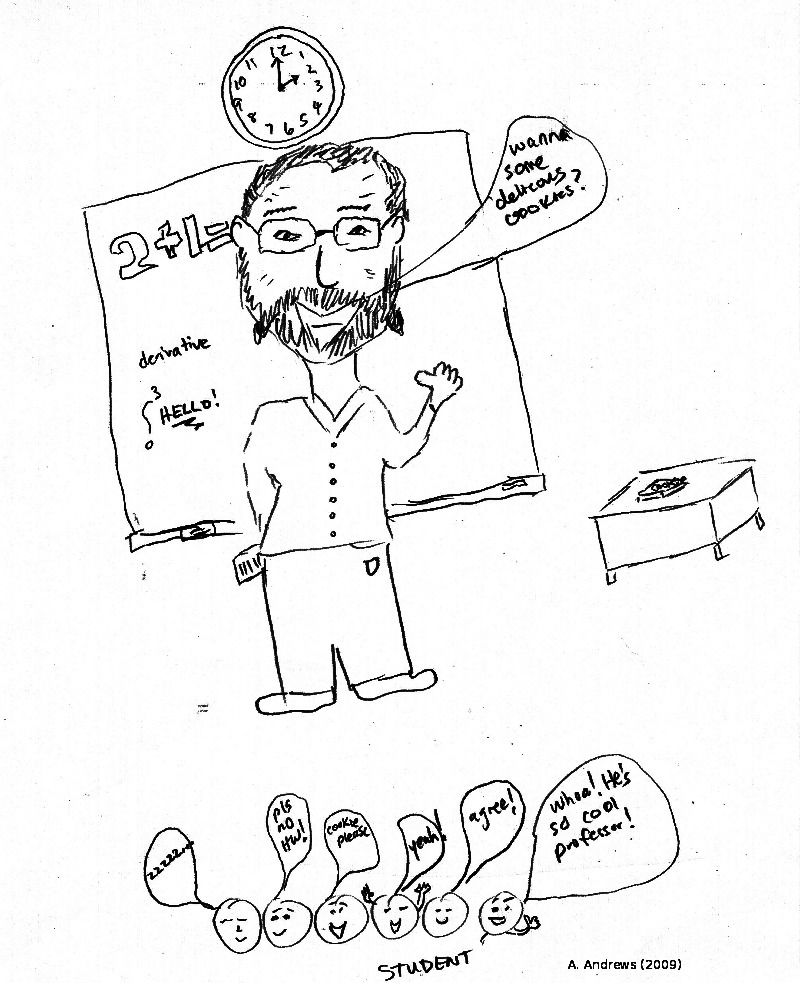 12
11
1
10
2
9
3
8
4
7
6
5
wanna
some
delicous
cookies?
2+1=
derivative
3
HELLO!
0
cookie
zzzzz...
pls
no
HW!
cookie
please
yeah!
agree!
whoa! He's
so cool
professor!
STUDENT
A. Andrews (2009)